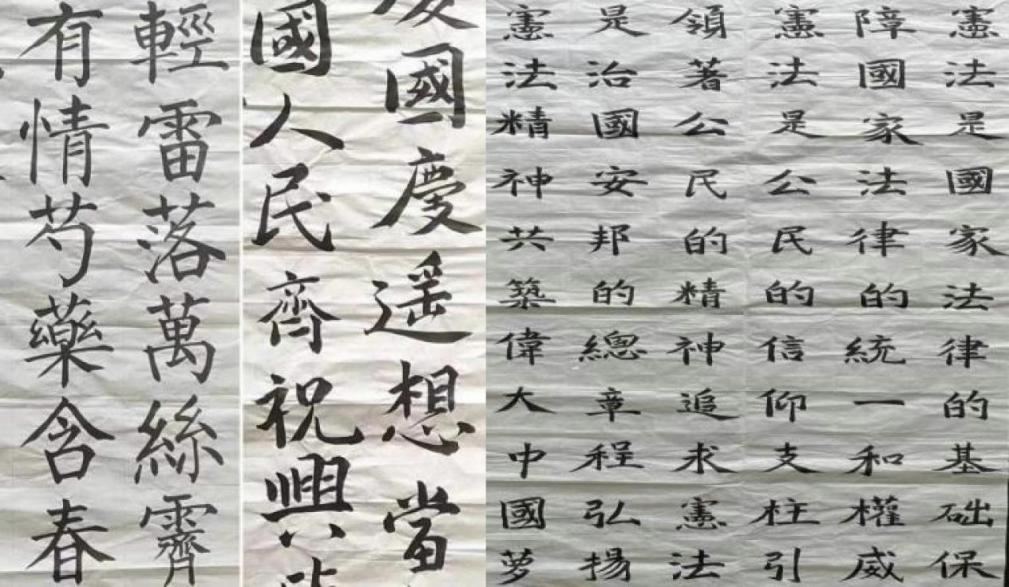 輕雷落萬絲霽
有情芍藥含春
國慶遥想當
國人民齊祝興
憲法是國家法律的基础保
障國家法律的統一和權威
憲法是公民的信仰支柱引
領著公民的精神追求憲法
是治國安邦的總章程弘揚
憲法精神共築偉大中國夢